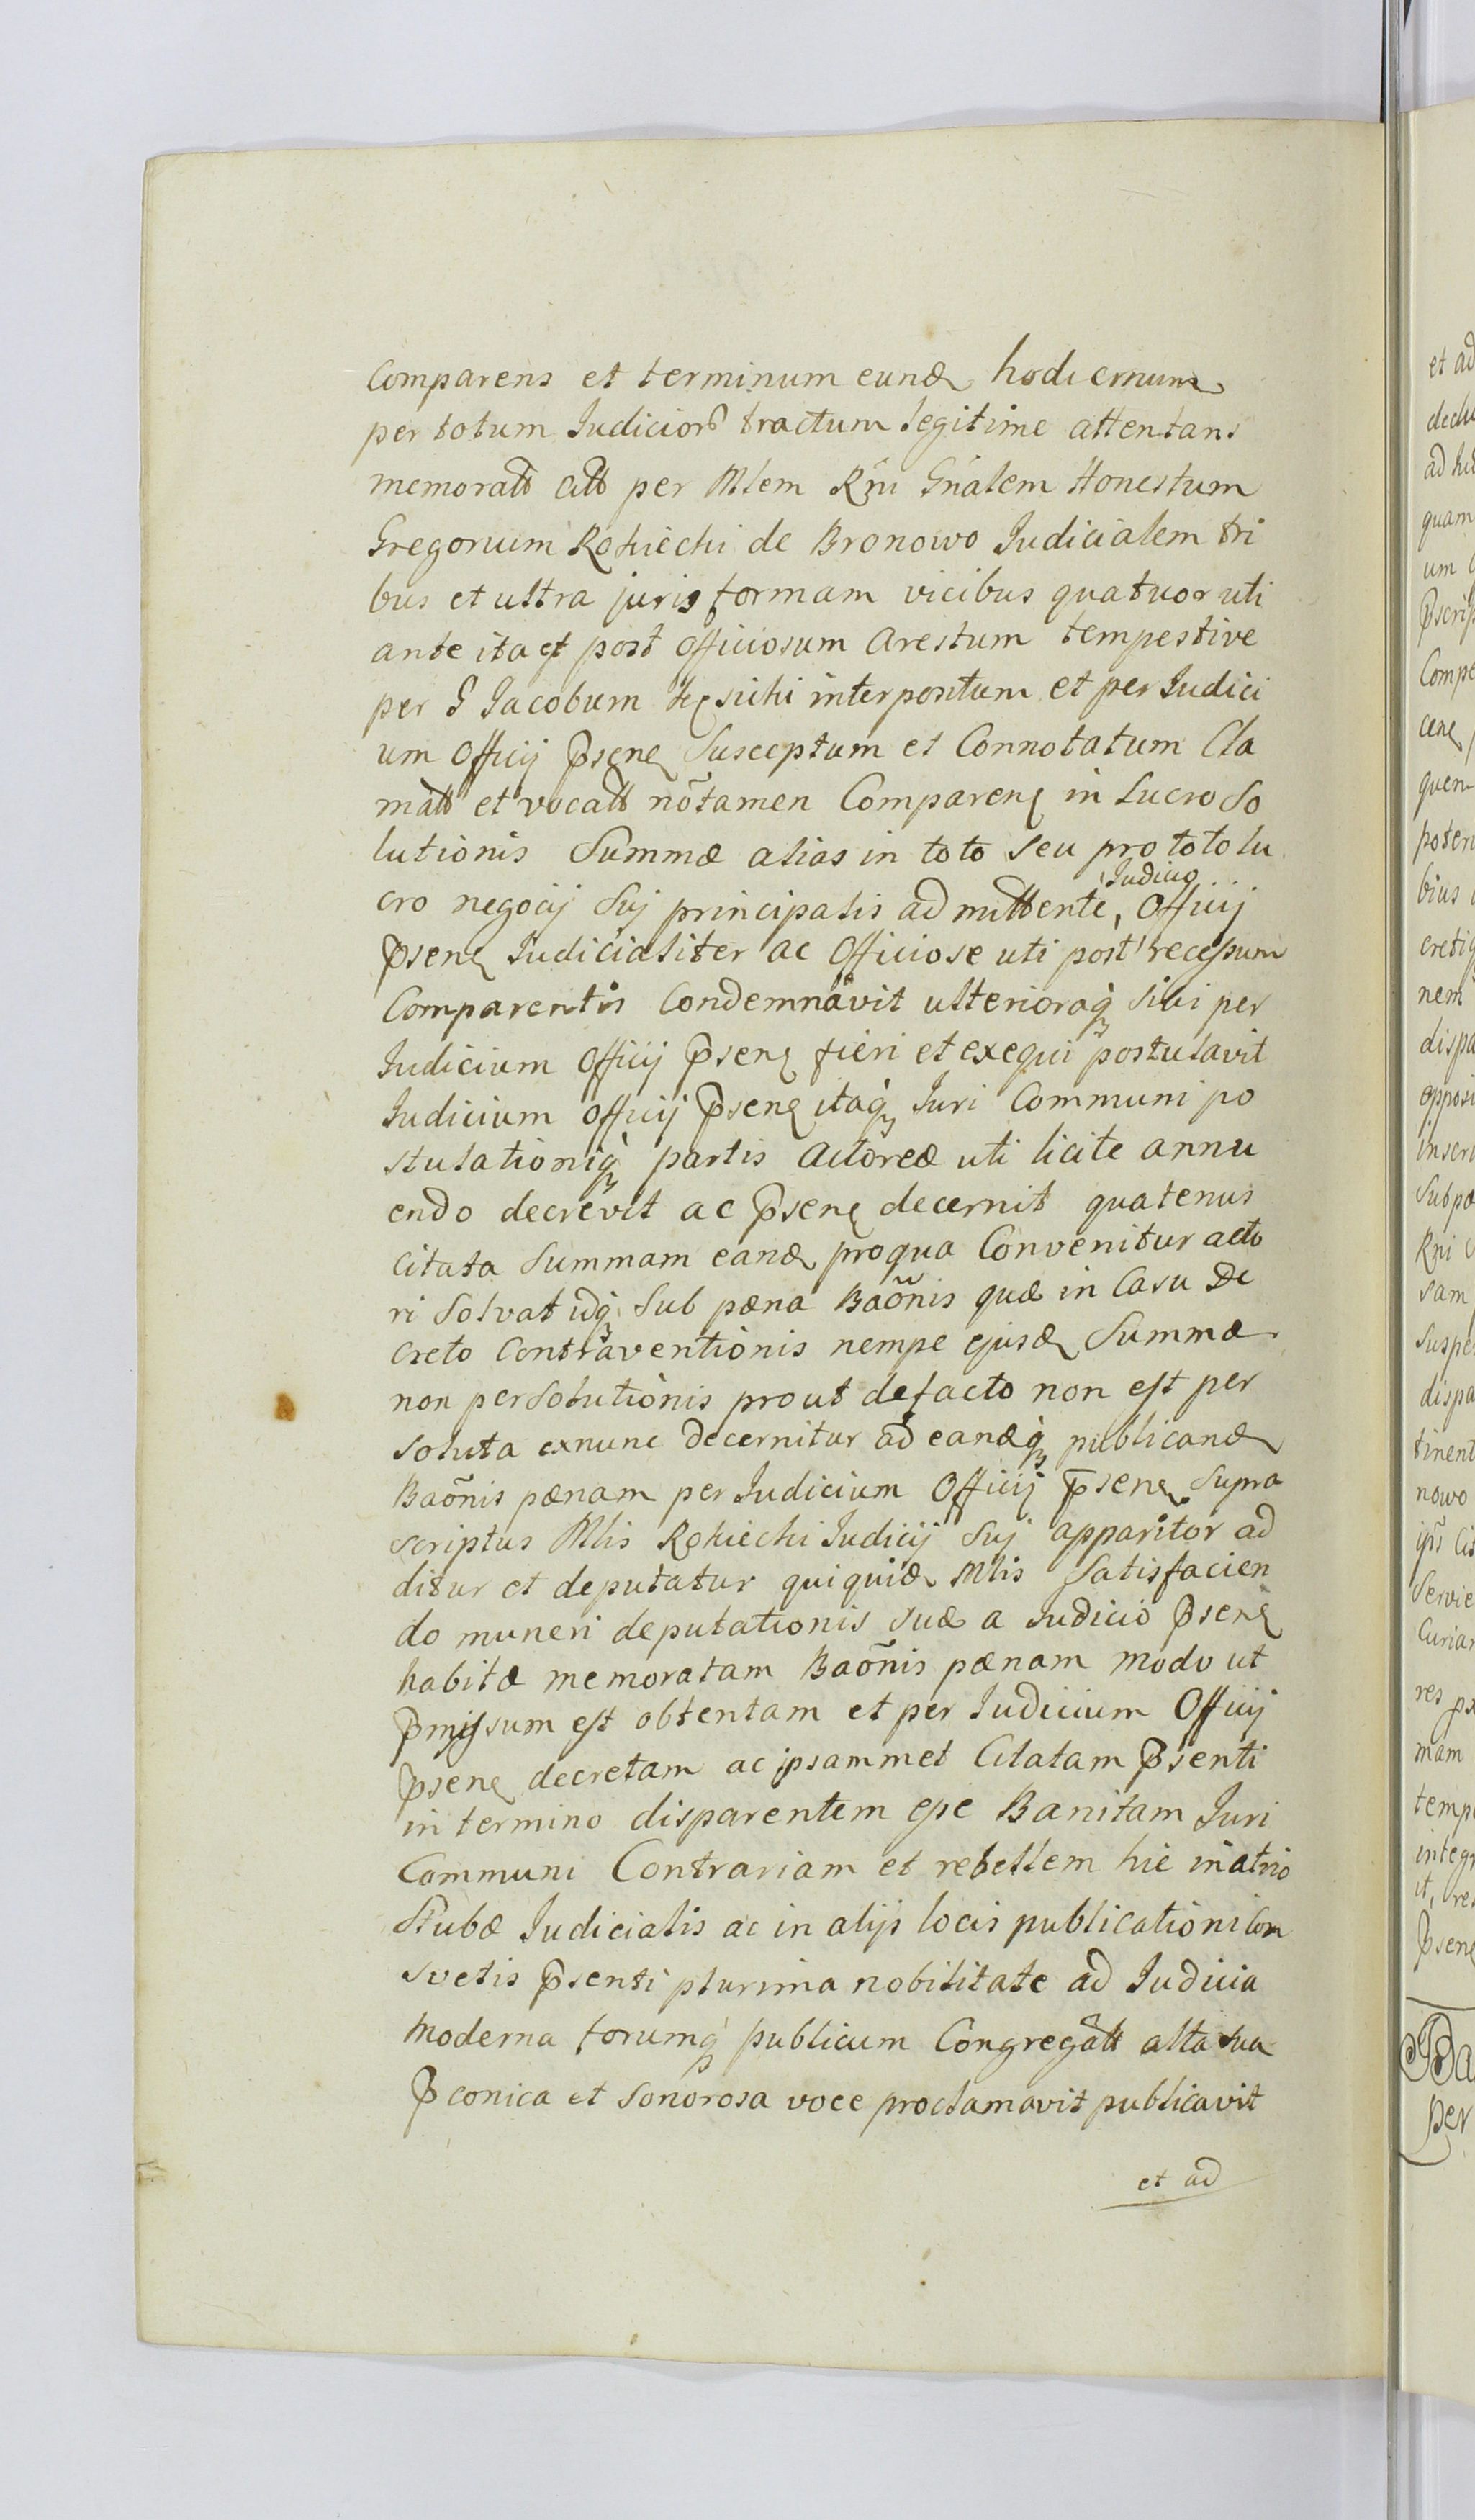 Comparens et terminum eund hodiernum
per totum Judicior tractum legitime attentans
memoratt citt per Mlem Rñi Gñalem Honestum
Gregorium Rokicki de Bronowo Judicialem tri
bus et ultra juris formam vicibus quatuor uti
ante ita et post officiosum Arestum tempestive
per G Jacobum interpositum et per Judici
um Officij p̄sens Susceptum et Connotatum Cla
matt et vocatt nõ tamen Comparens in Lucro So
lutionis Summæ alias in toto seu pro toto lu
cro negocij Suj principalis admittente, Judicio Officij
p̄sens Judicialiter ac Officiose uti post recessum
Comparentis Condemnavit ulterioraq sibi per
Judicium Officij p̄sens fieri et exequi postulavit
Judicium Officij p̄sens itaq Juri Communi po
stulationiq partis Actoreæ uti licite annu
endo decrevit ac p̄sens decernit quatenus
Citata Summam eand pro qua Convenitur acto
ri Solvat idq Sub pæna Baõnis quæ in Casu De
creto Contraventionis nempe ejusd Summæ
non persolutionis prout de facto non est per
soluta exnunc decernitur ad eandq publicand
Baõnis pænam per Judicium Officij p̄sens Supra
scriptus Mlis Rokicki Judicij Suj apparitor ad
ditur et deputatur qui quid Mlis Satisfacien
do muneri deputationis suæ a Judicio p̄sens
habitæ memoratam Baõnis pænam modo ut
p̄missum est obtentam et per Judicium Officij
p̄sens decretam ac ipsammet Citatam p̄senti
in termino disparentem esse Banitam Juri
Communi Contrariam et rebellem hic in atrio
Stubæ Judicialis ac in alijs locis publicationi Con
svetis p̄senti plurima nobilitate ad Judicia
moderna forumq publicum Congregatt alta sua
p̄conica et Sonorosa voce proclamavit publicavit
et ad